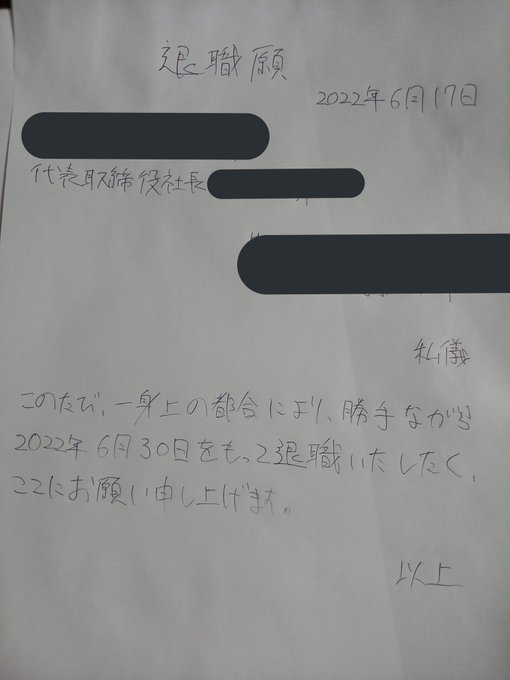 退職願
2022年6月17日
代表取締役社長
私儀
このたび、一身上の都合により、勝手ながら
2022年6月30日をもって退職いたしたく、
ここにお願い申し上げます。
以上